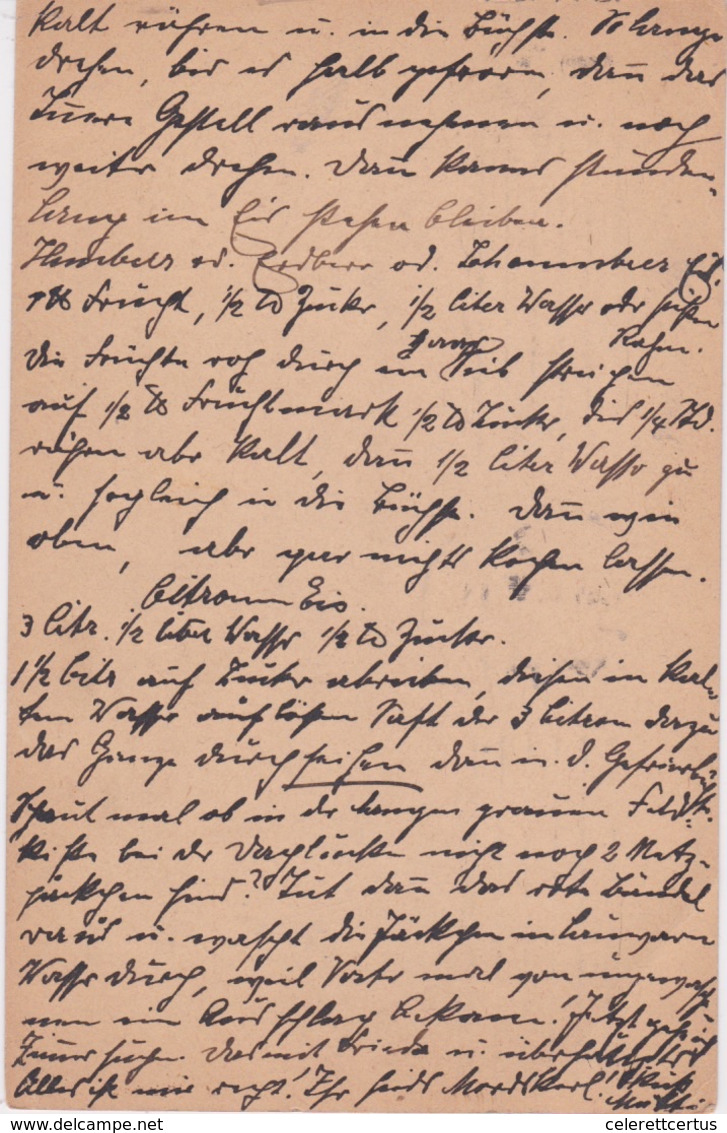 kalt rühren u. in die Büchse. So lange
drehen, bis es halb gefroren, dann das
Innere Gestell rausnehmen u. noch
weiter drehen. Dann kanns stunden-
lang im Eis stehen bleiben.
Himbeer od. Erdbeer od. Johannisbeer Eis.
1 ℔ Frucht, 1/2 ℔ Zucker, 1/2 Liter Wasser oder süßen
Haar Rahm.
Die Früchte roh durch ein Sieb streichen
auf 1/2 ℔ Fruchtmark 1/2 ℔ Zucker, dies 1/4 Std.
rühren aber kalt, dann 1/2 Liter Wasser zu
u. sogleich in die Büchse. Dann wie
oben, aber gar nichts kochen lassen.
Citronen Eis.
3 Citr. 1/2 Liter Wasser 1/2 ℔ Zucker.
1 1/2 Citr auf Zucker abreiben, diesen in kal-
tem Wasser auflösen Saft der 3 Citron dazu
das Ganze durchseihen dann in d. Gefrierbüchse
Schaut mal ob in der langen grauen
kiste bei der Dachlucke nicht noch 2 Netz-
jäckchen sind? Tut dann das rote Bändel
raus u. wascht die Jäckchen in lauwarm
Wasser durch, weil Vater mal von ungewasche-
nen ein Ausschlag bekam! Jetzt geh ich
Zimmer suchen. Das mit Frieda u. überhaupt
Alles ist mir recht! Ihr seids Mordskerl! Kuß
Mutti
celerettcertus